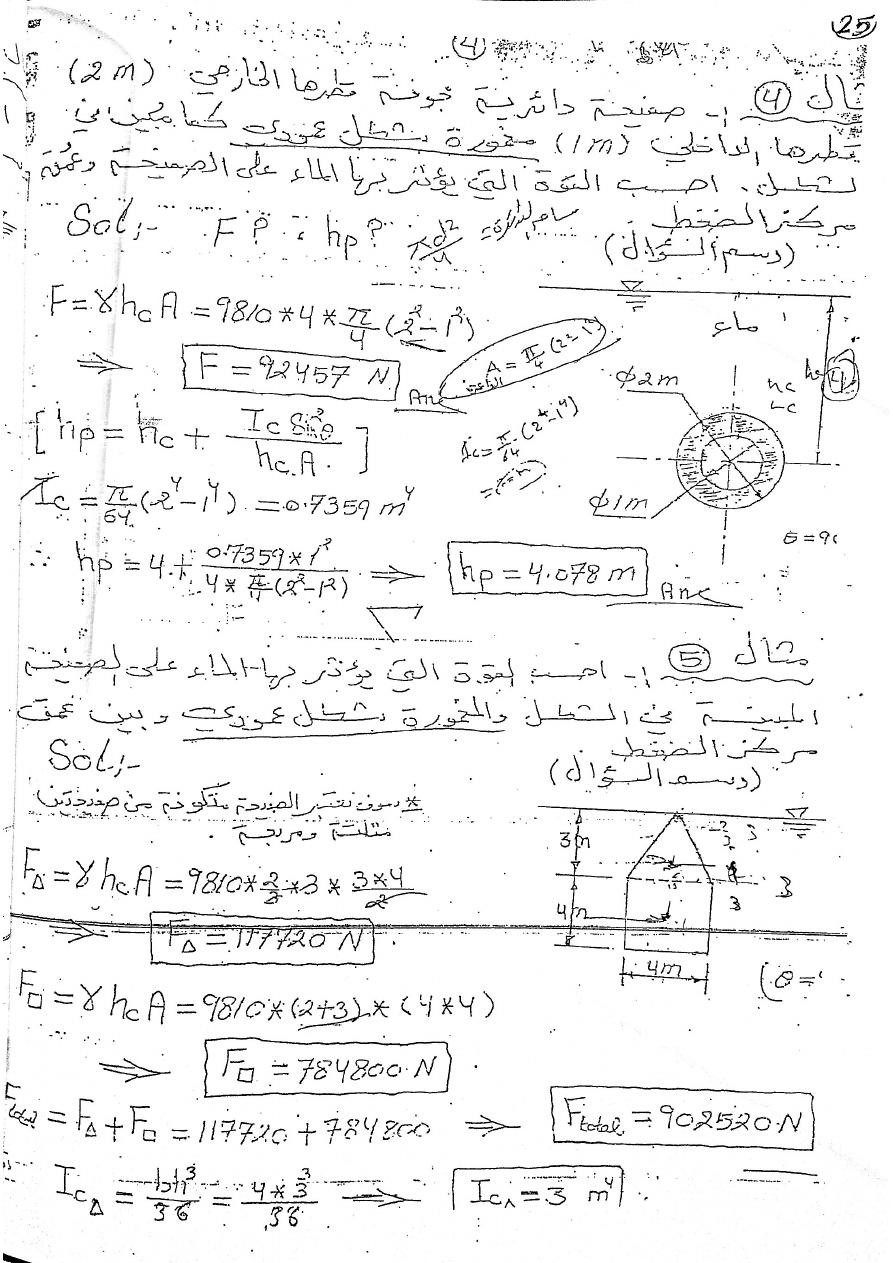 25
(4)
مثال ④ :- صفيحة دائرية مجوفة قطرها الخارجي (2m)
قطرها الداخلي (1m) مغمورة بشكل عمودي كما مبين في
لشكل. احسب القوة التي يؤثر بها الماء على الصفيحة وعمق
مركز الضغط
(رسم السؤال)
Sol:- F? , hp? πd²/4 = مساحة الدائرة
F = γ hc A = 9810 * 4 * π/4 (2² - 1²)
⇒ F = 92457 N Ans
A = π/4 (2² - 1²)
ماء
Φ2m
hc
4
Φ1m
θ=90
[hp = hc + Ic Sin²θ / hc.A.]
Ic = π/64 (2⁴ - 1⁴)
Ic = π/64 (2⁴ - 1⁴) = 0.7359 m⁴
∴ hp = 4 + 0.7359 * 1² / 4 * π/4 (2² - 1²) ⇒ hp = 4.078 m Ans
مثال ⑤ :- احسب القوة التي يؤثر بها الماء على الصفيحة
المبينة في الشكل والمغمورة بشكل عمودي وبين عمق
مركز الضغط
(رسم السؤال)
Sol:-
* سوف نعتبر الصفيحة متكونة من صفيحتين
مثلثة ومربعة.
3m
4m
4m
(θ=
F△ = γ hc A = 9810 * 2/3 * 3 * 3*4/2
⇒ F△ = 117720 N.
F□ = γ hc A = 9810 * (2+3) * (4*4)
⇒ F□ = 784800 N
Ftotal = F△ + F□ = 117720 + 784800 ⇒ Ftotal = 902520 N
Ic△ = bh³/36 = 4 * 3³/36 ⇒ Ic△ = 3 m⁴